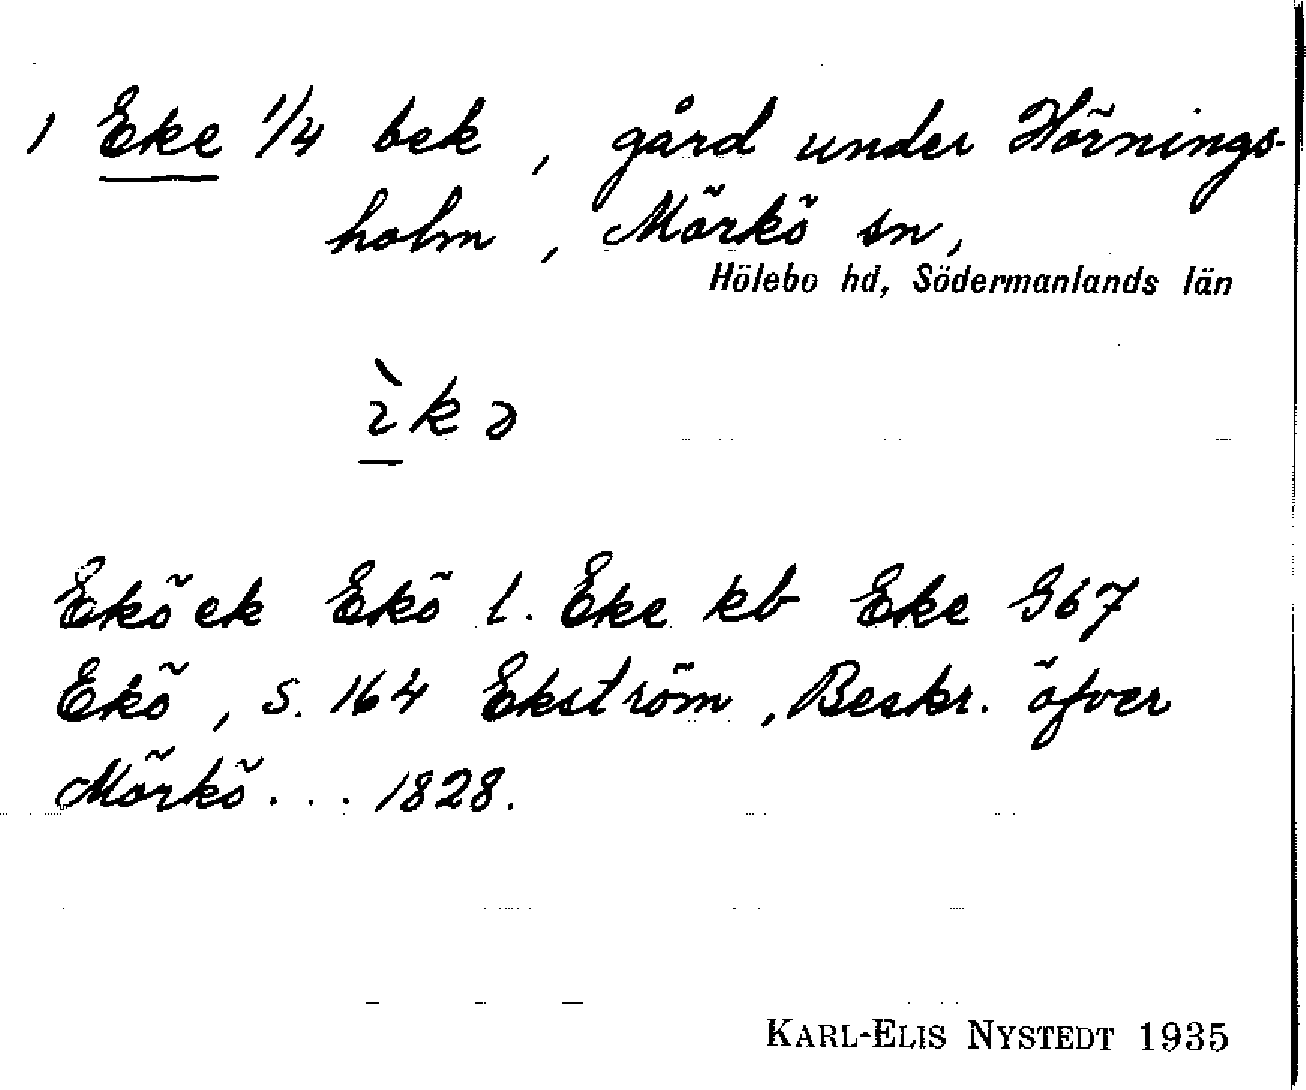 1 Eke 1/4 bek, gård under Hörnings-
holm, Mörkö sn,
Hölebo hd, Södermanlands län
ɿ̀kə
Ekö ek Ekö l. Eke kb Eke G67
Ekö, s. 164 Ekström, Beskr. öfver
Mörkö... 1828.
KARL-ELIS NYSTEDT 1935